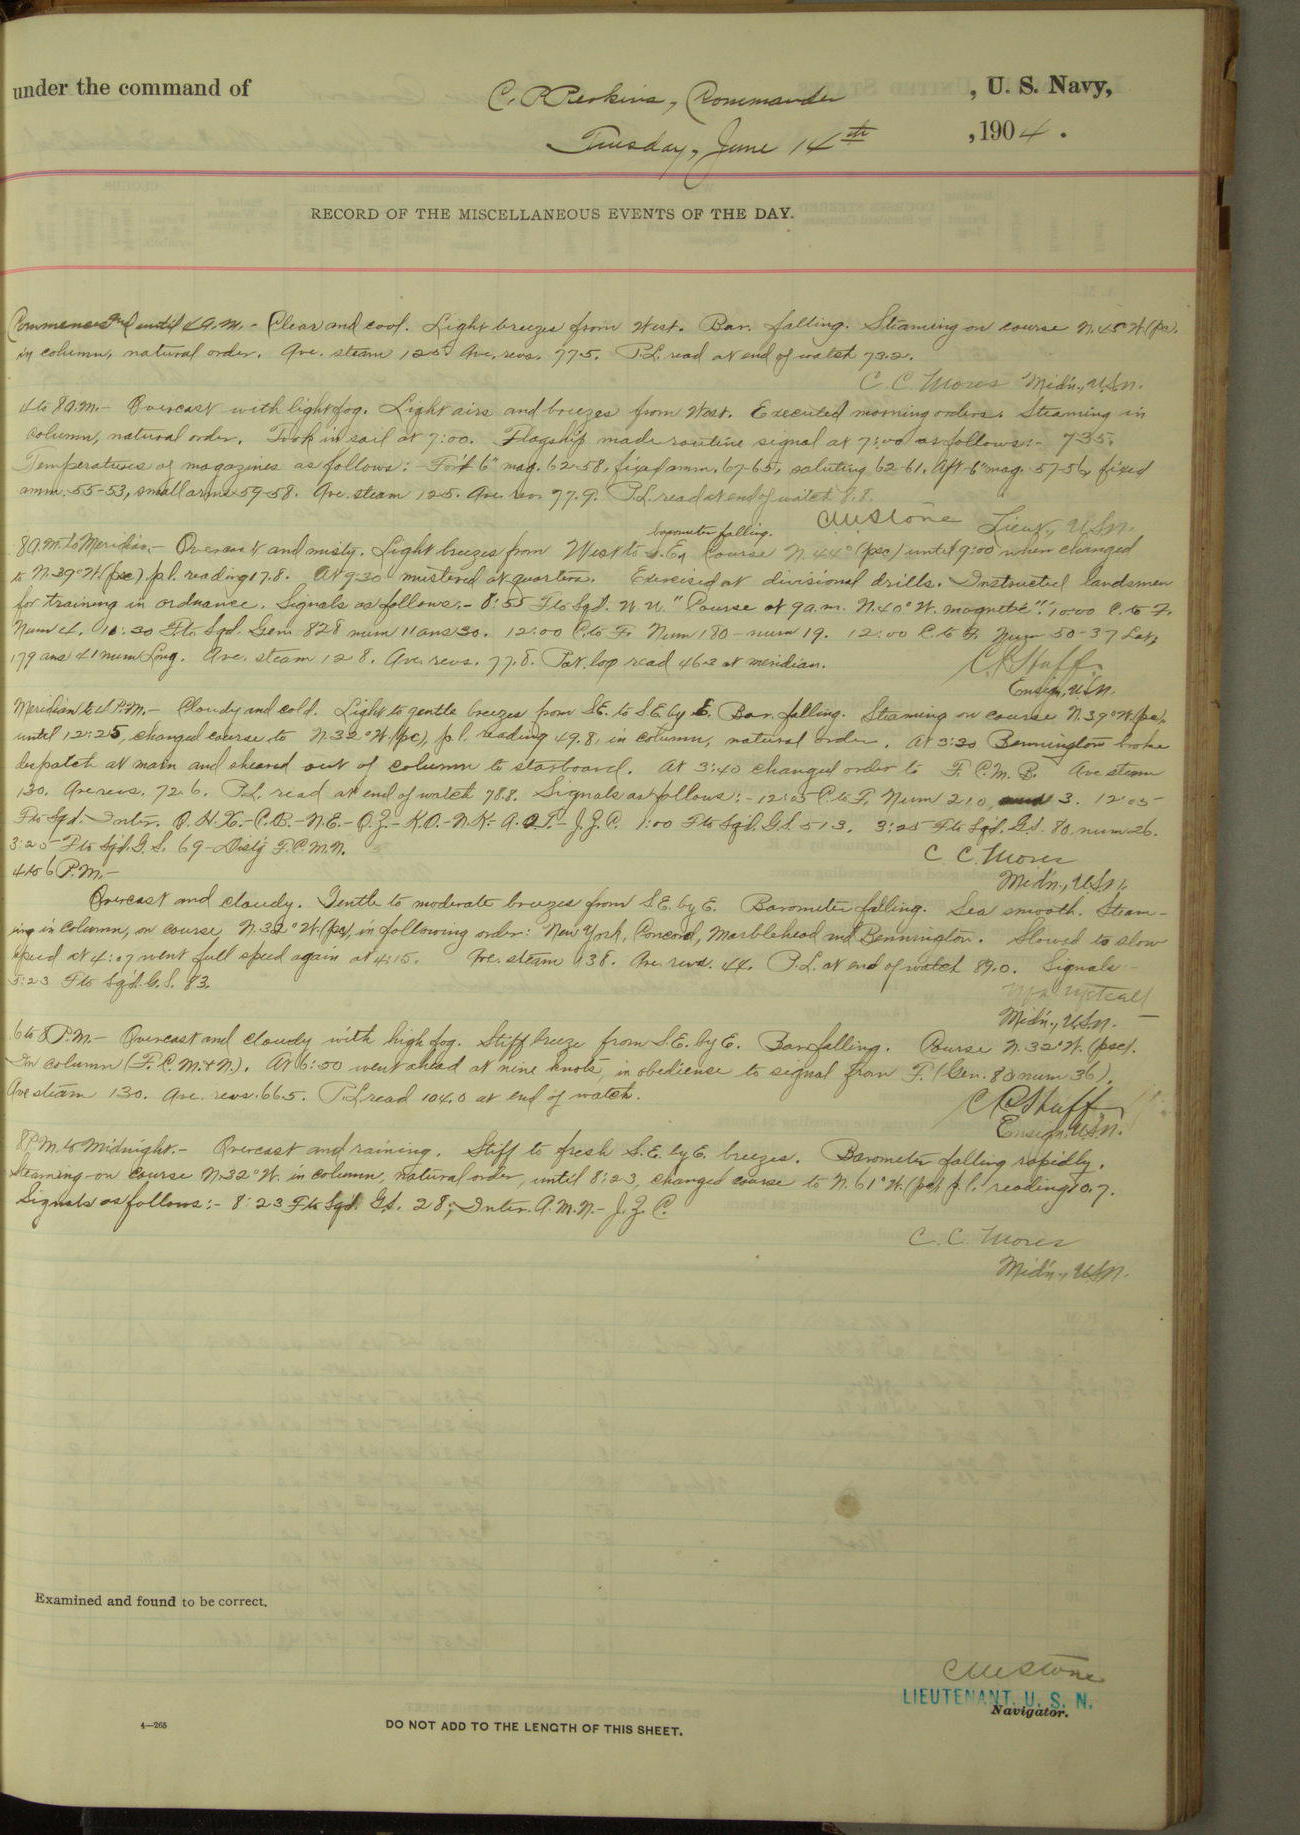 under the command of C. P. Perkins, Commander, U. S. Navy,
Tuesday, June 14th, 1904.
RECORD OF THE MISCELLANEOUS EVENTS OF THE DAY.
Commences and until 4 a.m.- Clear and cool. Light breezes from West. Bar. falling. Steaming on course N. 45° W. (psc).
in column, natural order. Ave. steam 125 Ave. revs. 77.5. P.L. read at end of watch 73.2.
C. C. Moses Mid'n., U.S.N.
4 to 8 a.m.- Overcast with light fog. Light airs and breezes from West. Executed morning orders. Steaming in
column, natural order. Took in sail at 7:00. Flagship made routine signal at 7:00 as follows:- 735.
Temperatures of magazines as follows:- For'd 6" mag. 62-58, fixed amm. 67-65, saluting 62-61. Aft 6" mag. 57-56, fixed
amm. 55-53, small arms 59-58. Ave. steam 125. Ave. rev. 77.9. P.L. read at end of watch 8.8.
C M Stone Lieut., U.S.N.
barometer falling.
8 a.m. to Meridian.- Overcast and misty. Light breezes from West to S.E. Course N. 44° (psc) until 9:00 when changed
to N. 39° W. (psc) p.l. reading 17.8. At 9:30 mustered at quarters. Exercised at divisional drills. Instructed landsmen
for training in ordnance. Signals as follows.- 8:55 F. to Sqd. W.U. "Course at 9 a.m. N. 40° W. magnetic". 10:00 C. to F.
Num 4. 11:30 F. to Sqd. Gen. 828 num 11 ans 30. 12:00 C. to F. Num 180-num 19. 12:00 C. to F. Num 50-37 Lat,
179 ans 41 num Long. Ave. steam 128. Ave. revs. 77.8. Pat. log read 46.2 at meridian.
Ensign, U.S.N.
Meridian to 4 P.M.- Cloudy and cold. Light to gentle breezes from S.E. to S.E. by E. Bar. falling. Steaming on course N. 39° W. (psc),
until 12:25, changed course to N. 32° W. (psc), p.l. reading 49.8, in column, natural order. At 3:20 Bennington broke
despatch at main and sheared out of column to starboard. At 3:40 changed order to F. C. M. B. Ave steam
130. Ave revs. 72.6. P.L. read at end of watch 78.8. Signals as follows:- 12:05 C. to F. Num 210, 3. 12:05-
F. to Sqd. Inter. Q.H.X.-C.B.-N.E.-Q.Z.-K.O.-N.K.-A.Q.T.-J.Z.C. 1:00 F. to Sqd. G.S. 513. 3:25 F. to Sqd. G.S. 80, num 26.
3:20 F. to Sqd. G.S. 69-Disty F.C.M.N.
C. C. Moses
Mid'n., U.S.N.
4 to 6 P.M.-
Overcast and cloudy. Gentle to moderate breezes from S.E. by E. Barometer falling. Sea smooth. Steam-
ing in column, on course N. 32° W. (psc), in following order: New York, Concord, Marblehead and Bennington. Slowed to slow
speed at 4:07 went full speed again at 4:15. Ave. steam 138. Ave. revs. 44. P.L. at end of watch 89.0. Signals-
5:23 F. to Sqd. G.S. 83.
Metcalf
Mid'n., U.S.N.
6 to 8 P.M.- Overcast and cloudy with high fog. Stiff breeze from S.E. by E. Bar. falling. Course N. 32° W. (psc).
In column (F. C. M. & N.). At 6:50 went ahead at nine knots, in obedience to signal from F. (Gen. 80 num 36).
Ave steam 130. Ave. revs. 66.5. P.L. read 104.0 at end of watch.
Ensign, U.S.N.
8 P.M. to Midnight.- Overcast and raining. Stiff to fresh S.E. by E. breezes. Barometer falling rapidly.
Steaming on course N. 32° W. in column, natural order, until 8:23, changed course to N. 61° W. (psc), p.l. reading 10.7.
Signals as follows:- 8:23 F. to Sqd. G.S. 28; Inter. A.M.N.- J.Z.C.
C. C. Moses
Mid'n., U.S.N.
Examined and found to be correct.
C M Stone
LIEUTENANT, U. S. N.
Navigator.
4—265
DO NOT ADD TO THE LENGTH OF THIS SHEET.